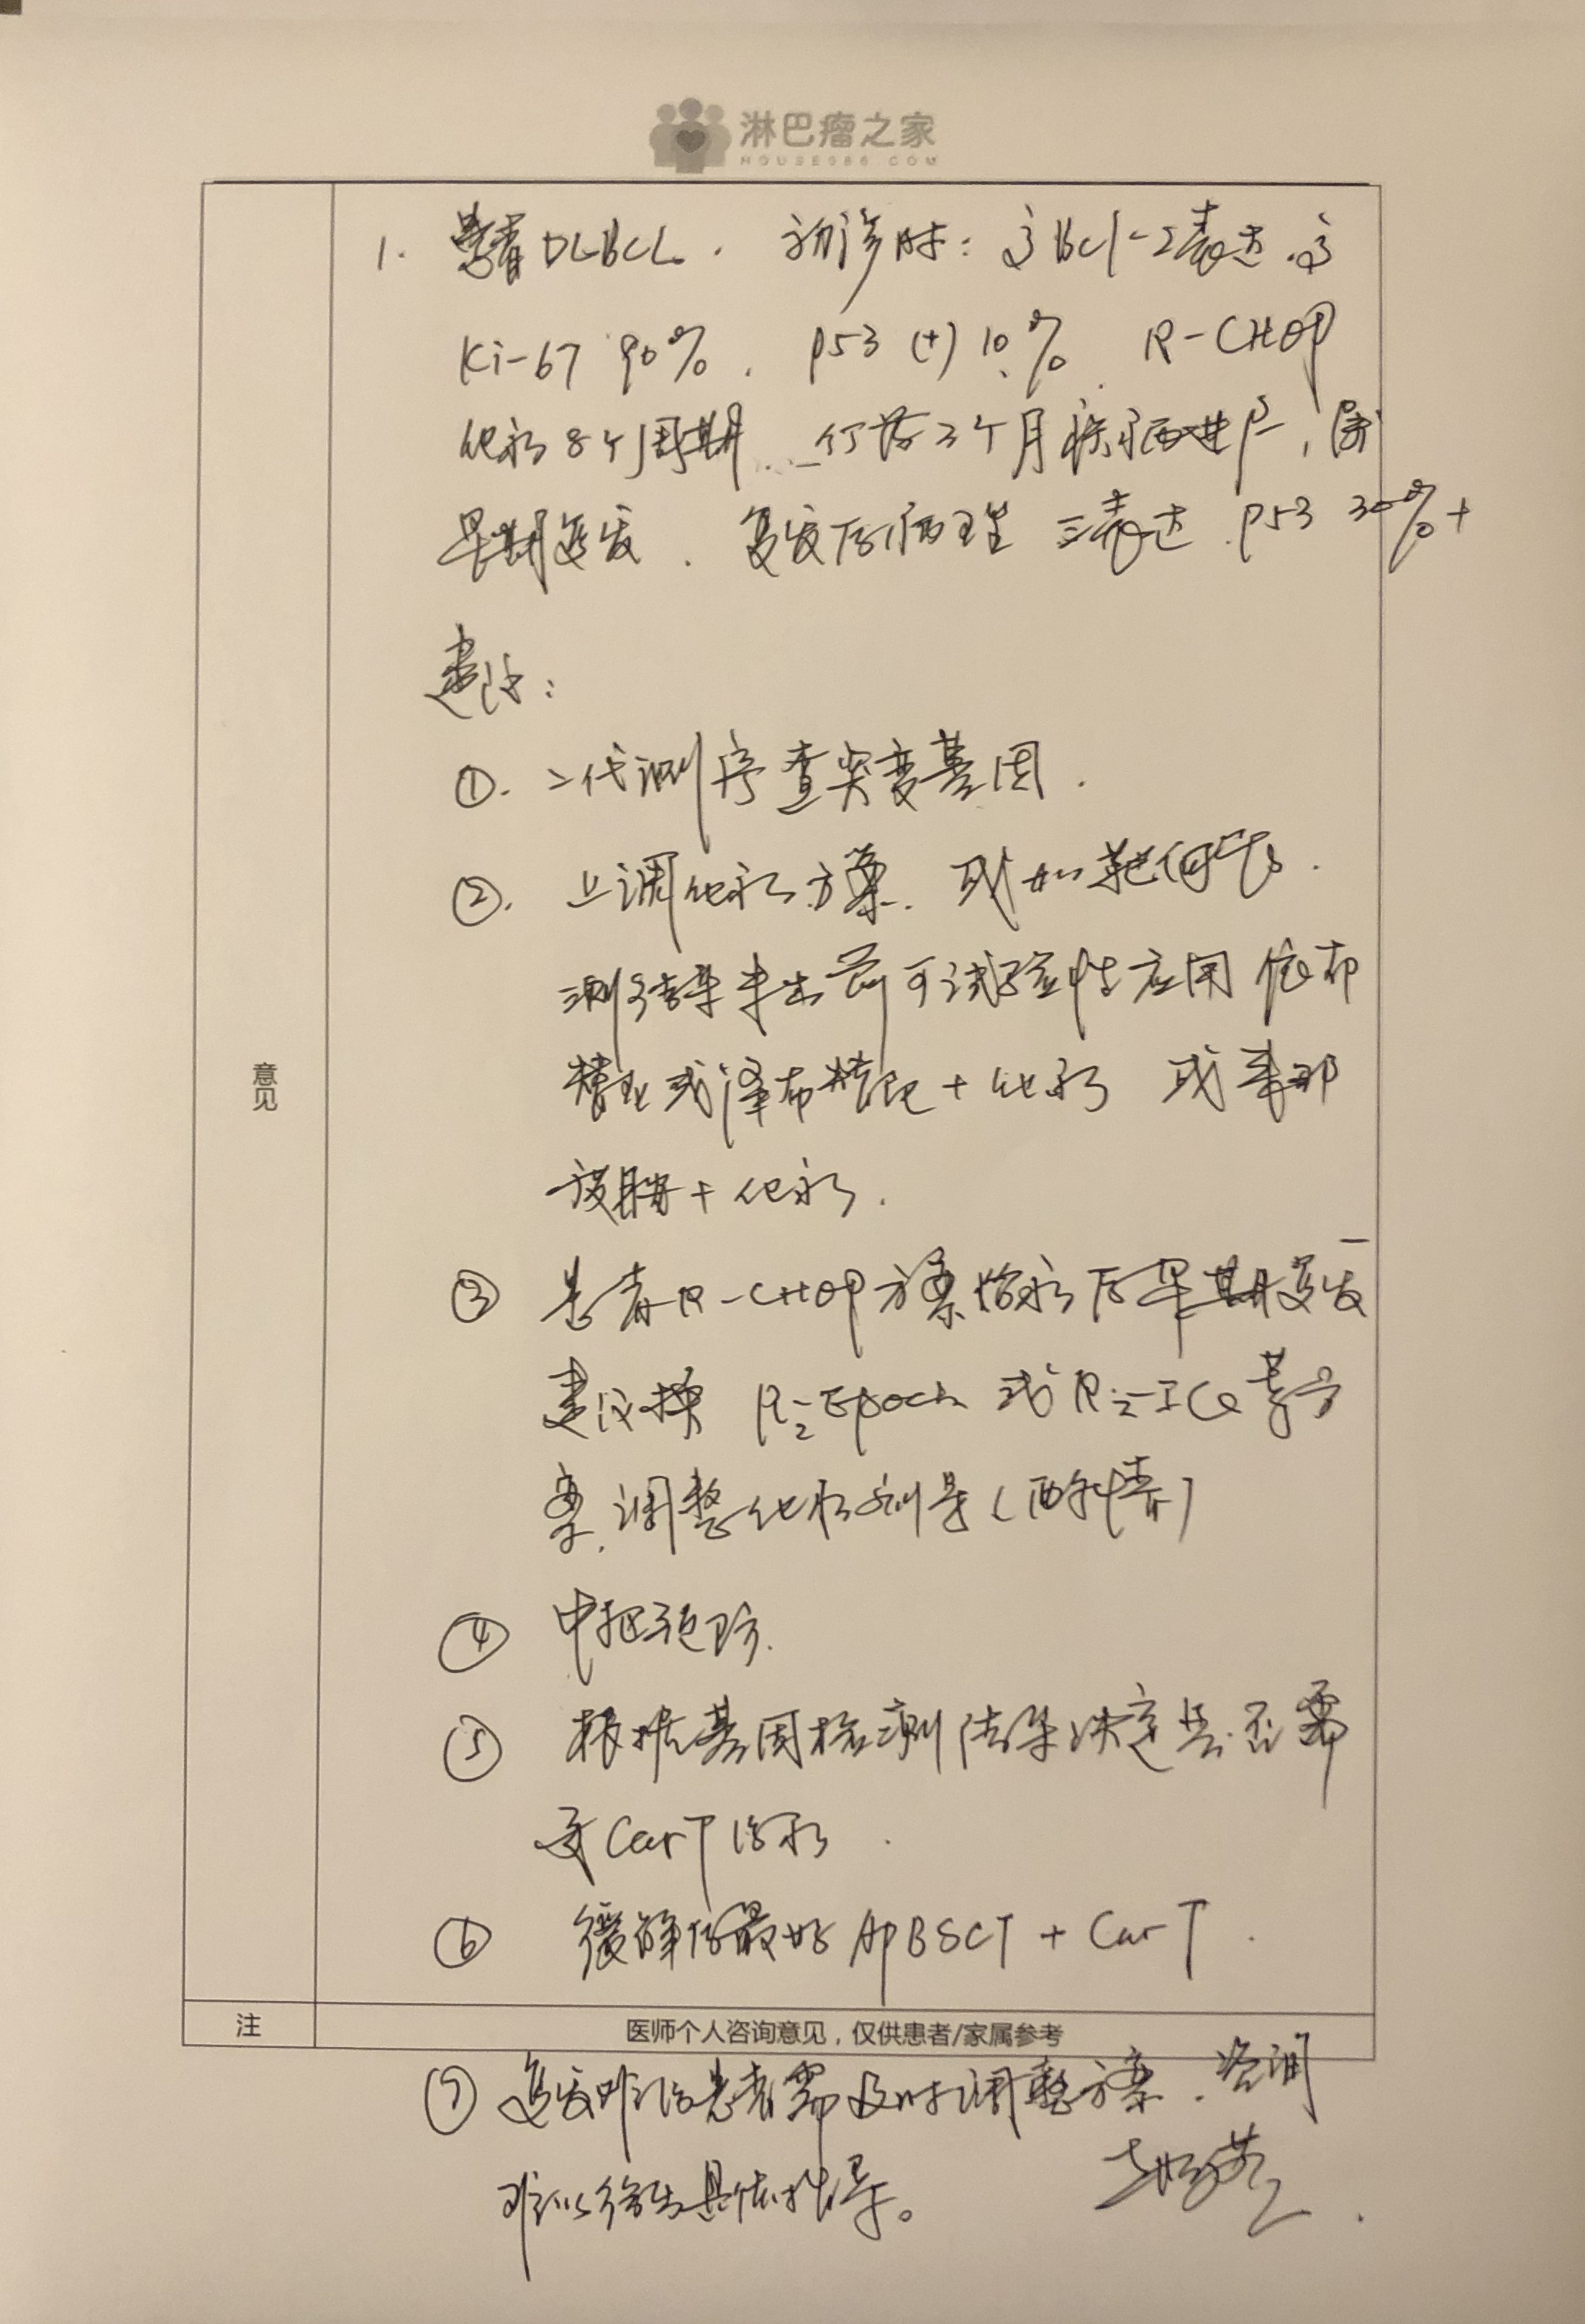 淋巴瘤之家
HOUSE086.COM
1. 患者DLBCL. 初诊时: 高Bcl-2表达.高
Ki-67 90%. p53 (+) 10%. R-CHOP
化疗8个周期. 停药3个月疾病进户, 属
早期复发. 复发后病理 三表达 p53 30%+
建议:
①. 二代测序查突变基因.
②. 上调化疗方案. 或加靶向药.
测结果未出前可试验性应用 依布
替尼或泽布替尼+化疗 或来那
度胺+化疗.
③ 患者R-CHOP方案治疗后早期复发
建议换 R2-Epoch 或 R2-ICE等方
案.调整化疗剂量(西
④ 中枢预防.
⑤ 根据基因检测结果决定是否需
要CarT治疗.
⑥ 缓解后最好APBSCT + CarT.
意见
注 医师个人咨询意见,仅供患者/家属参考
⑦ 复发难治患者需及时调整方案.咨询
难以给出具体指导。